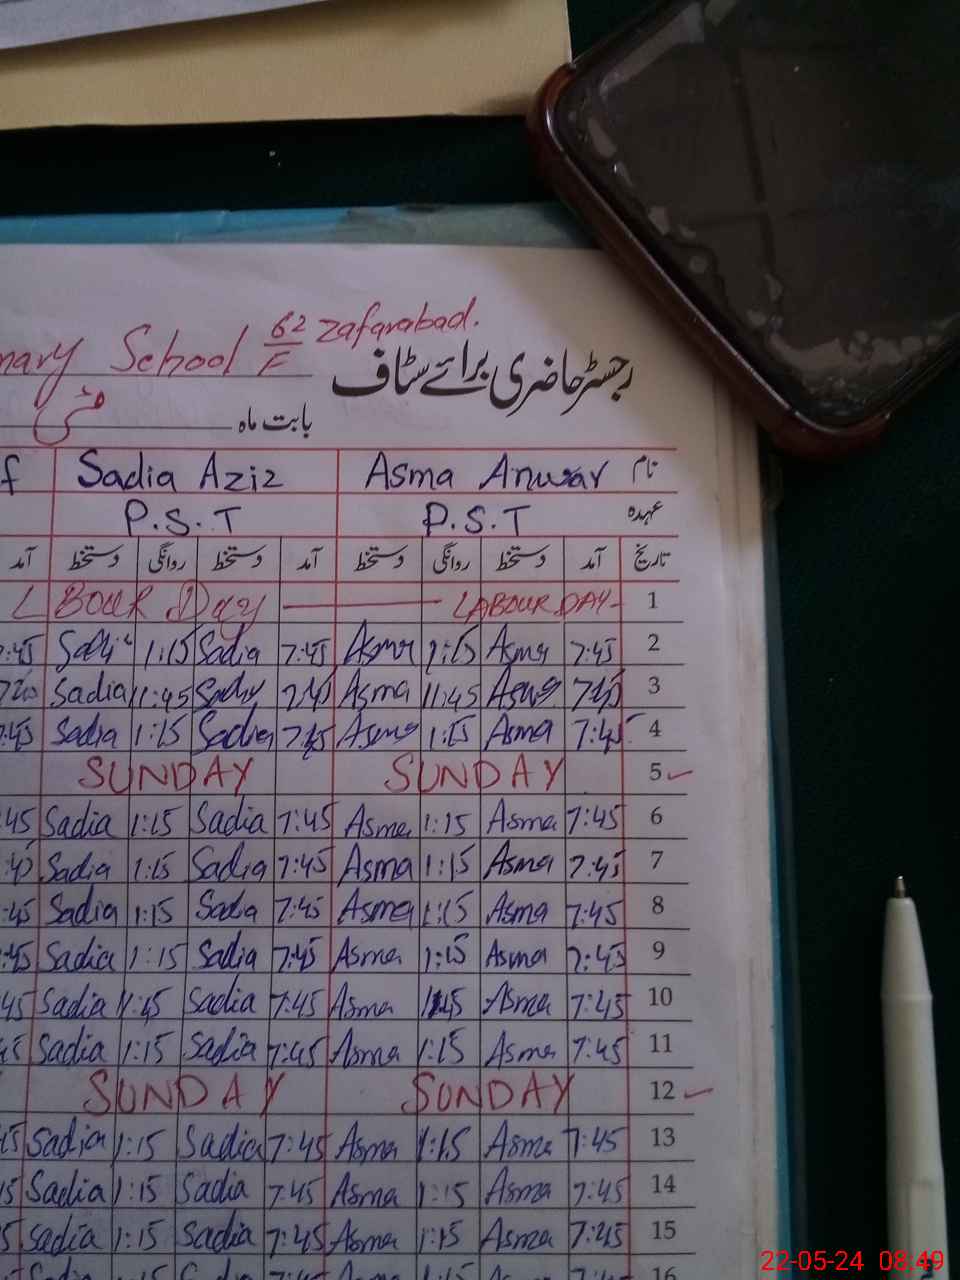 School 62/F Zafarabad.
رجسٹر حاضری برائے سٹاف
بابت ماہ مئی
نام Asma Anwar Sadia Aziz f
عہدہ P.S.T P.S.T
تاریخ آمد دستخط روانگی دستخط آمد دستخط روانگی دستخط آمد
1 LABOUR DAY BOUR Day
2 7:45 Asma 1:15 Asma 7:45 Sadia 1:15 Sadia 7:45
3 7:45 Asma 11:45 Asma 7:45 Sadia 11:45 Sadia
4 7:45 Asma 1:15 Asma 7:45 Sadia 1:15 Sadia 7:45
5 SUNDAY SUNDAY
6 7:45 Asma 1:15 Asma 7:45 Sadia 1:15 Sadia 45
7 7:45 Asma 1:15 Asma 7:45 Sadia 1:15 Sadia :45
8 7:45 Asma 1:15 Asma 7:45 Sadia 1:15 Sadia :45
9 7:45 Asma 1:15 Asma 7:45 Sadia 1:15 Sadia :45
10 7:45 Asma Asma 7:45 Sadia 11:45 Sadia 45
11 7:45 Asma 1:15 Asma 7:45 Sadia 1:15 Sadia
12 SUNDAY SUNDAY
13 7:45 Asma 1:15 Asma 7:45 Sadia 1:15 Sadia
14 7:45 Asma 1:15 Asma 7:45 Sadia 1:15 Sadia
15 7:45 Asma 1:15 Asma 7:45 Sadia 1:15 Sadia
16
22-05-24 08:49